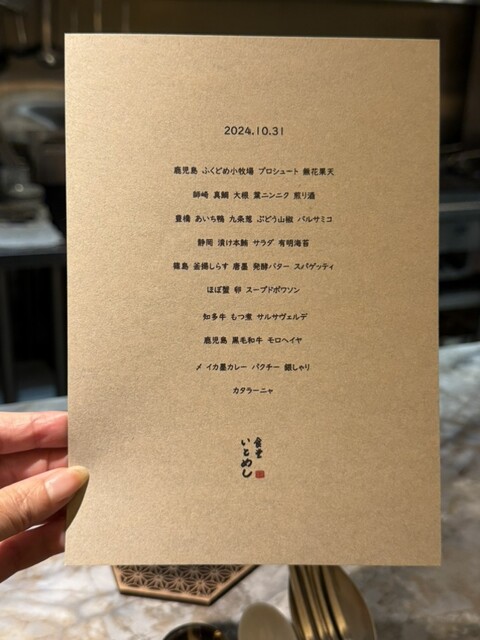 2024.10.31
鹿児島 ふくどめ小牧場 プロシュート 無花果天
師崎 真鯛 大根 葉ニンニク 煎り酒
豊橋 あいち鴨 九条葱 ぶどう山椒 バルサミコ
静岡 漬け本鮪 サラダ 有明海苔
篠島 釜揚しらす 唐墨 発酵バター スパゲッティ
ほぼ蟹 卵 スープドポワソン
知多牛 もつ煮 サルサヴェルデ
鹿児島 黒毛和牛 モロヘイヤ
〆 イカ墨カレー パクチー 銀しゃり
カタラーニャ
食堂
いとめし